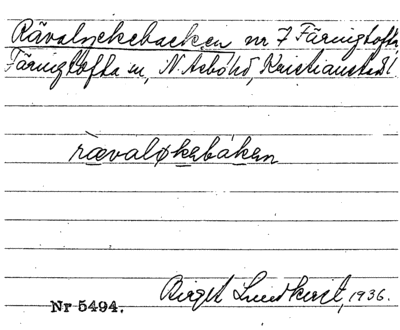 Rävalyckebacken nr 7 Färingtofta,
Färingtofta sn, N. Åsbo hd, Kristianstads l
rævaløkebákan
Birgit Lundkvist, 1936.
Nr 5494.